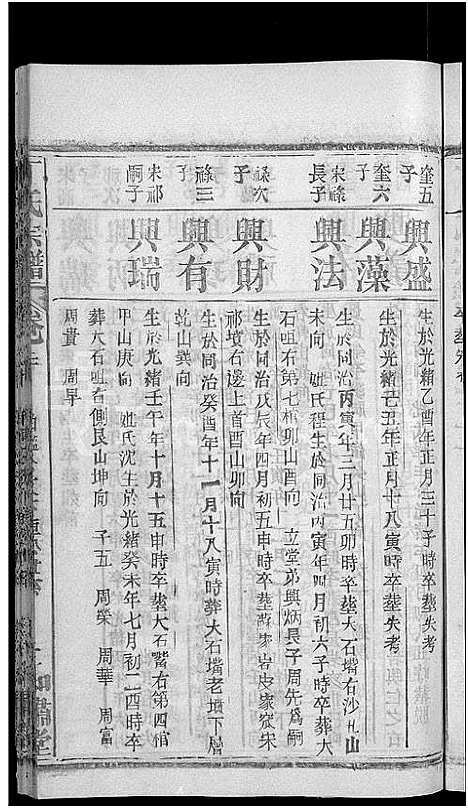 奎五子
興盛
生於光緒乙酉年正月三十子時卒塟失考
奎六子
興藻
生於光緒己丑年正月廿八寅時卒塟失考
宋祿長子
興法
生於同治丙寅年三月廿五卯時卒塟大石嘴右沙丸山
未向　妣氏程生於同治丙寅年四月初六子時卒葬大
石咀右第七棺卯山酉向　立堂弟興炳長子周先爲嗣
祿次子
興財
生於同治戊辰年四月初五申時卒塟蘇家岩史家窊宋
祁墳右邊上首酉山卯向
祿三子
興有
生於同治癸酉年十一月十八寅時葬大石嘴老墳下層
乾山巽向
宋祁嗣子
興瑞
生於光緒壬午年十月十五申時卒塟大石嘴右第四棺
甲山庚向　妣氏沈生於光緒癸未年七月初二酉時卒
葬大石咀右側艮山坤向　子五　周榮　周華　周富
周貴　周早
氏宗譜